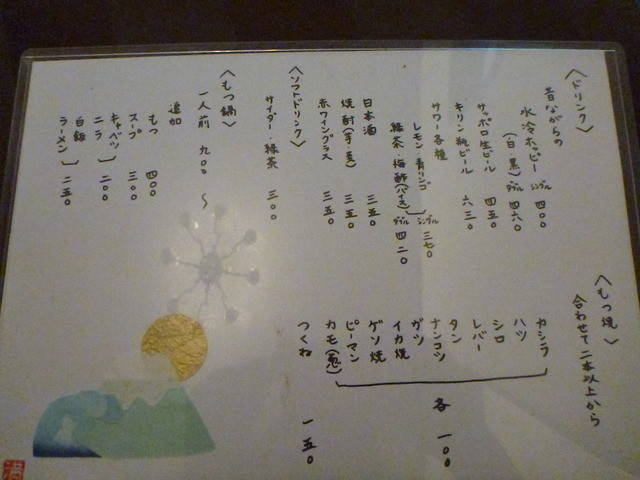 〈ドリンク〉
昔ながらの
氷冷ホッピー シングル 四〇〇
(白・黒) ダブル 四六〇
サッポロ生ビール 四五〇
キリン瓶ビール 六三〇
サワー各種
レモン 青リンゴ シングル 三七〇
緑茶・梅酢 ダブル 四二〇
日本酒 三五〇
焼酎(芋麦) 三五〇
赤ワイングラス 三五〇
〈ソフトドリンク〉
サイダー・緑茶 三〇〇
〈もつ鍋〉
一人前 九〇〇〜
追加
もつ 四〇〇
スープ 三〇〇
キャベツ
ニラ 二〇〇
白飯
ラーメン 二五〇
〈もつ焼〉
合わせて二本以上から
カシラ
ハツ
シロ
レバー
タン
ナンコツ
ガツ
イカ焼
ゲソ焼
ピーマン
カモ(葱)
各 一〇〇
つくね 一五〇
満